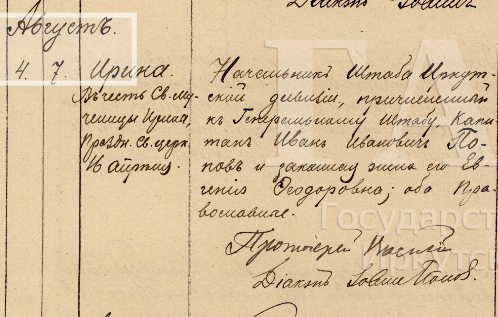 Діаконъ Іоаннъ
Августъ.
4. 7. Ирина.
Въ честь Св. му-
ченицы Ирины,
Праздн. Св. церк.
16 Апрѣля
Начальникъ Штаба Иркут-
ской дивизіи, причисленный
къ Генеральному Штабу, Капи-
танъ Иванъ Ивановичъ По-
повъ и законная жена его Ев-
генія Ѳеодоровна; оба Пра-
вославные.
Протоіерей
Діаконъ Іоаннъ Поповъ.
ГА
Государст
Иркутск